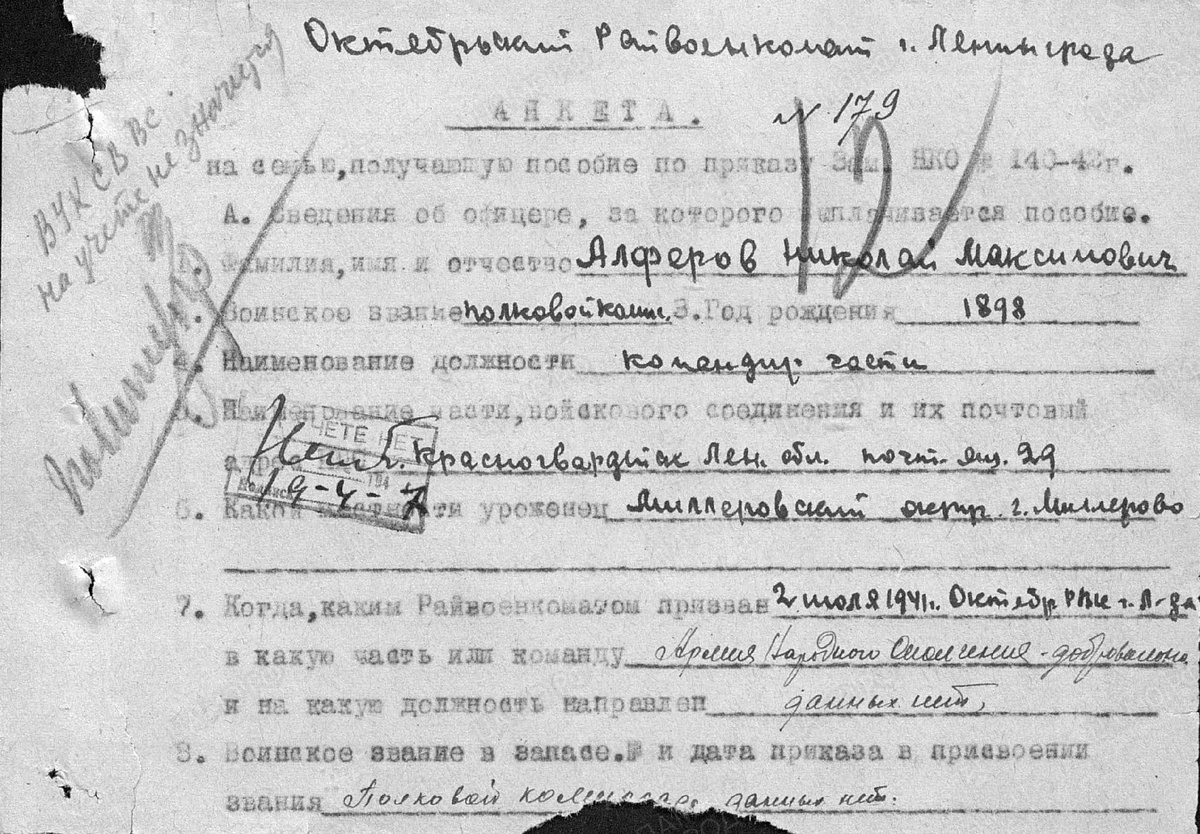 Октябрьский Райвоенкомат г. Ленинграда
АНКЕТА.
N 179
12
на семью, получающую пособие по приказу Зам. НКО № 140-42г.
А. Сведения об офицере, за которого выплачивается пособие.
Фамилия, имя и отчество Алферов Николай Максимович
Воинское звание полковой комис. 3. Год рождения 1898
4. Наименование должности командир части
5. Наименование части, войскового соединения и их почтовый
г. Красногвардейск Лен. обл. почт. ящ. 29
6. Какой местности уроженец Миллеровский окр. г. Миллерово
7. Когда, каким Райвоенкоматом призван 2 июля 1941г. Октябр РВК г. Л-да
в какую часть или команду Армия Народного Ополчения - добровольно
и на какую должность направлен данных нет,
8. Воинское звание в запасе. № и дата приказа в присвоении
звания Полковой комиссар, данных нет.
ВУК СВ ВС
на учете не значится
УЧЕТЕ НЕТ
19-4-7